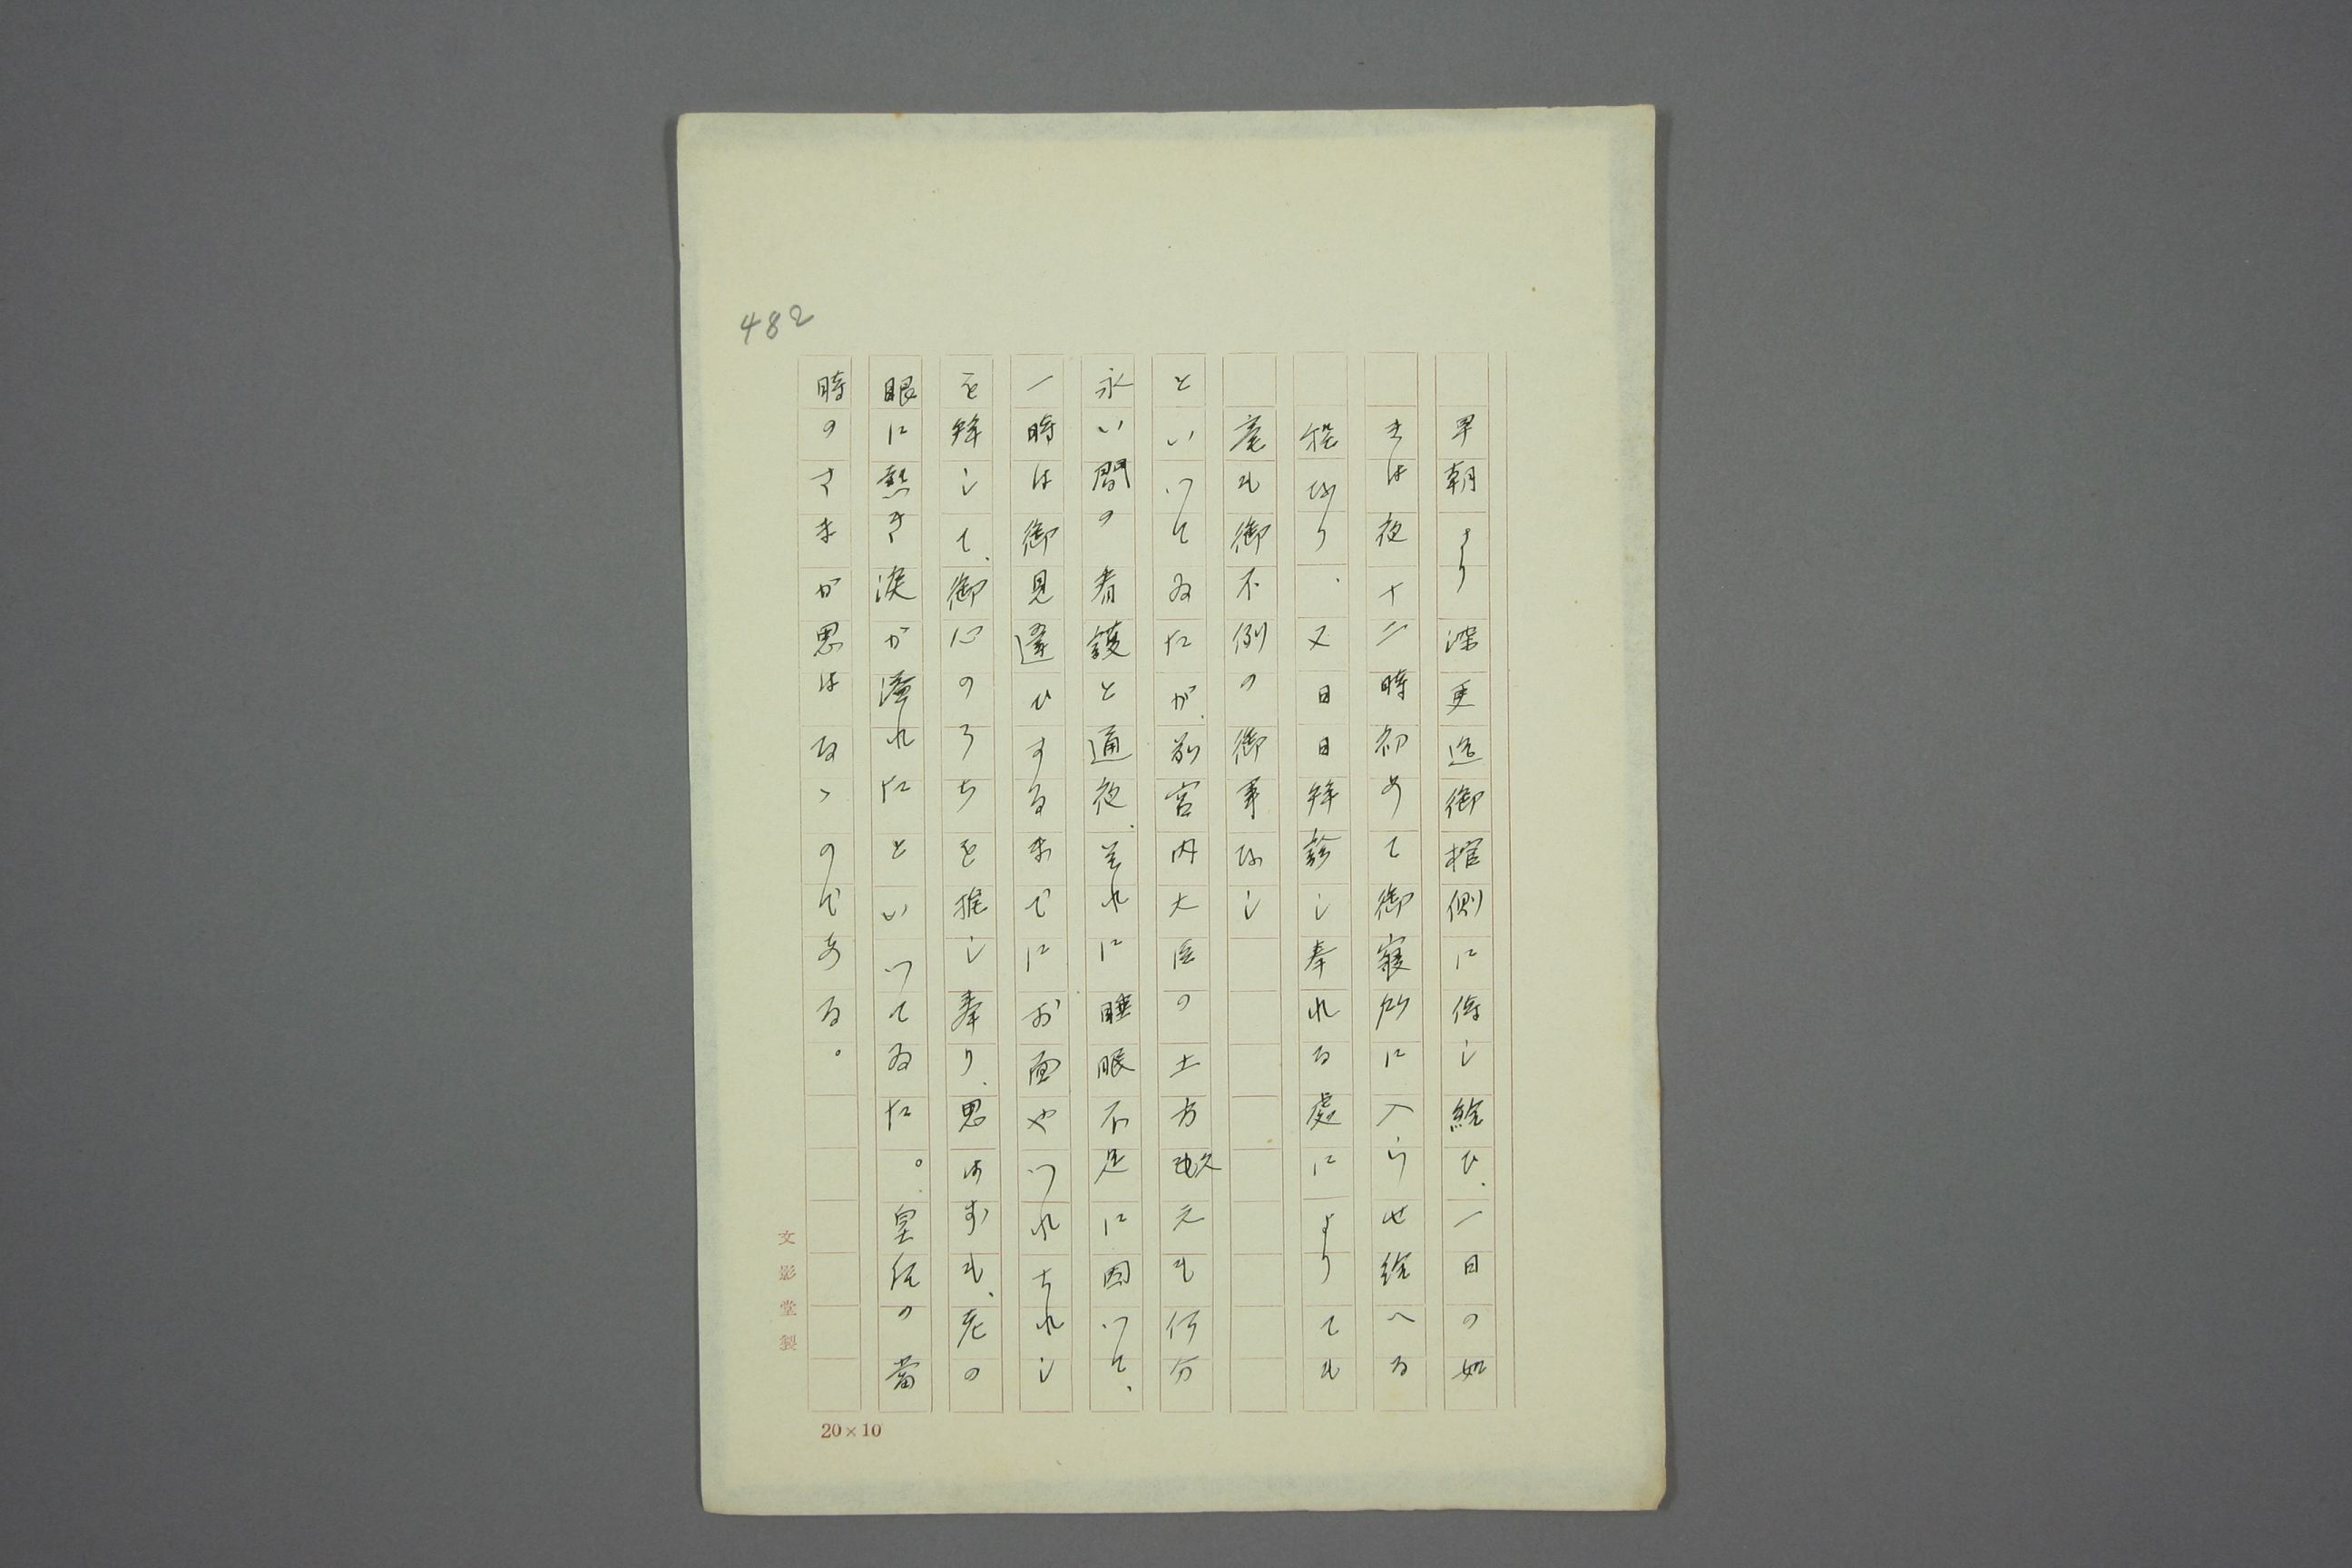 482
早朝より深更迄御棺側に侍し給ひ、一日の如
きは夜十二時初めて御寝所に入らせ給へる
程なり、又日日拝診し奉れる處によりても
毫も御不例の御事なし
といつてゐたが、前宮内大臣の土方久元も何分
永い間の看護と通夜、それに睡眠不足に困つて、
一時は御見違ひするまでにお面やつれられし
を拝して、御心のうちを推し奉り、思はずも、老の
眼に熱き涙が溢れたといつてゐた。皇后の當
時のさまが思はるゝのである。
文影堂製
20×10